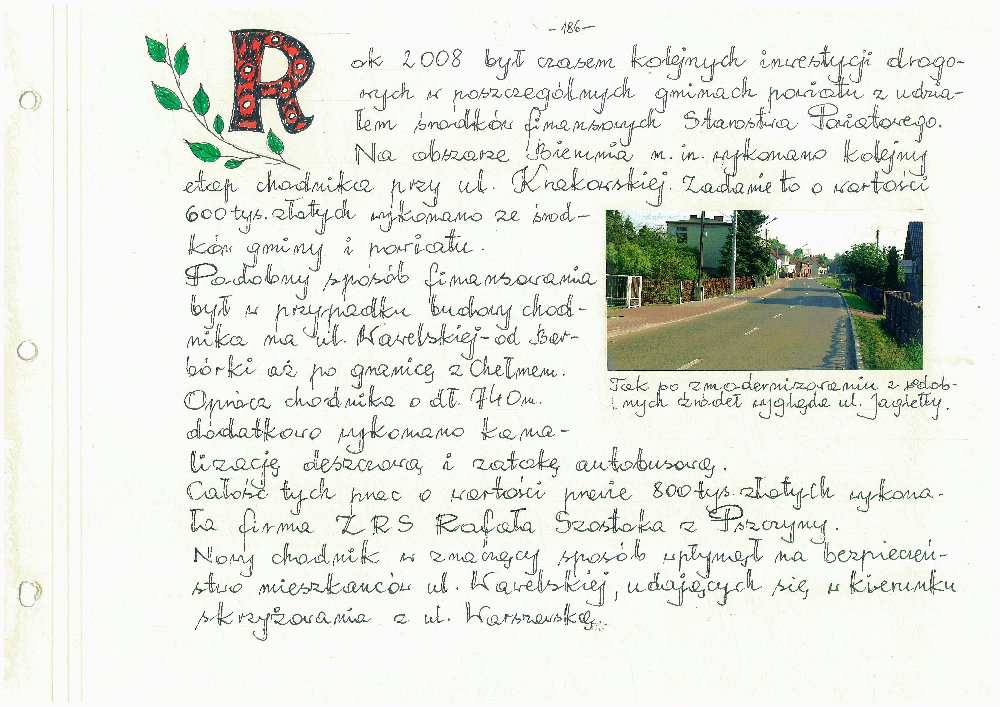 -186-
Rok 2008 był czasem kolejnych inwestycji drogo-
wych w poszczególnych gminach powiatu z udzia-
łem środków finansowych Starostwa Powiatowego.
Na obszarze Bierunia m. in. wykonano kolejny
etap chodnika przy ul. Krakowskiej. Zadanie to o wartości
600 tys. złotych wykonano ze środ-
ków gminy i powiatu.
Podobny sposób finansowania
był w przypadku budowy chod-
nika na ul. Wawelskiej - od Bar-
bórki aż po granicę z Chełmem.
Oprócz chodnika o dł. 740 m.
dodatkowo wykonano kana-
lizację deszczową i zatokę autobusową.
Całość tych prac o wartości prawie 800 tys. złotych wykona-
ła firma ZRS Rafała Szostaka z Pszczyny.
Nowy chodnik w znaczący sposób wpłynął na bezpieczeń-
stwo mieszkańców ul. Wawelskiej, udających się w kierunku
skrzyżowania z ul. Warszawską.
Tak po zmodernizowaniu z podob-
nych źródeł wygląda ul. Jagiełły.